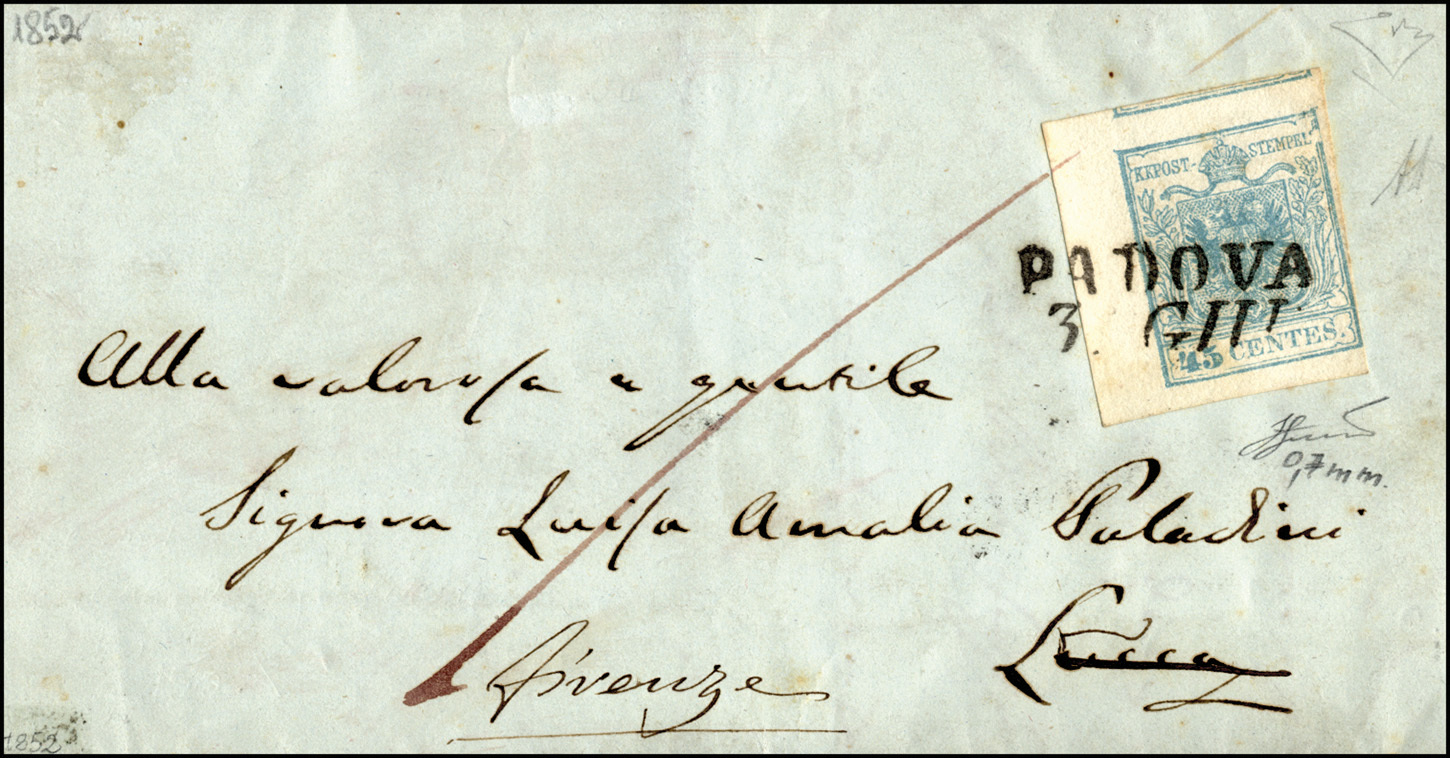 1852
KKPOST-STEMPEL
PADOVA
3. GIU.
45 CENTES.
0,7 mm.
Alla valorosa e gentile
Signora Luisa Amalia Paladini
Lucca
Firenze
1852